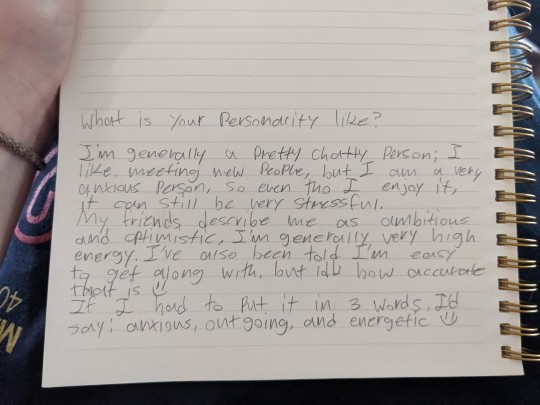 What is your Personality like?
I'm generally a Pretty chatty Person; I
like meeting new People, but I am a very
anxious Person, so even tho I enjoy it,
it can still be very stressful.
My friends describe me as ambitious
and optimistic, I'm generally very high
energy. I've also been told I'm easy
to get along with, but idk how accurate
that is
If I had to Put it in 3 words, I'd
say: anxious, outgoing, and energetic